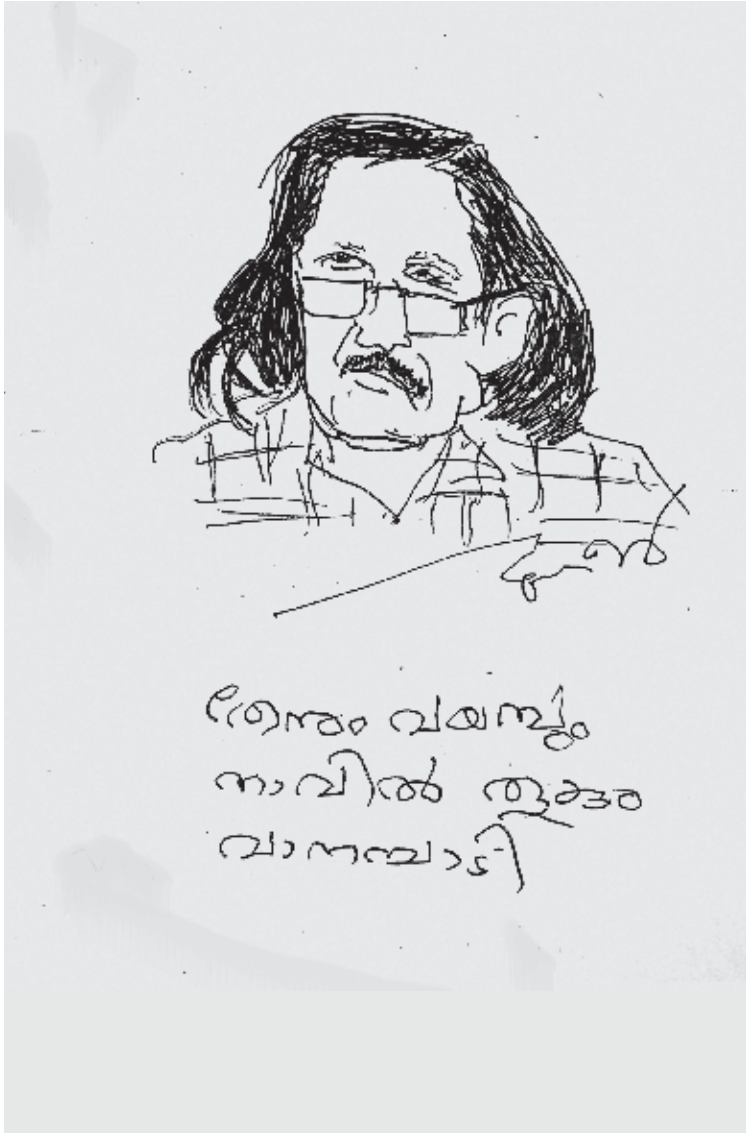 തേനും വയമ്പും
നാവിൽ തൂകും
വാനമ്പാടി